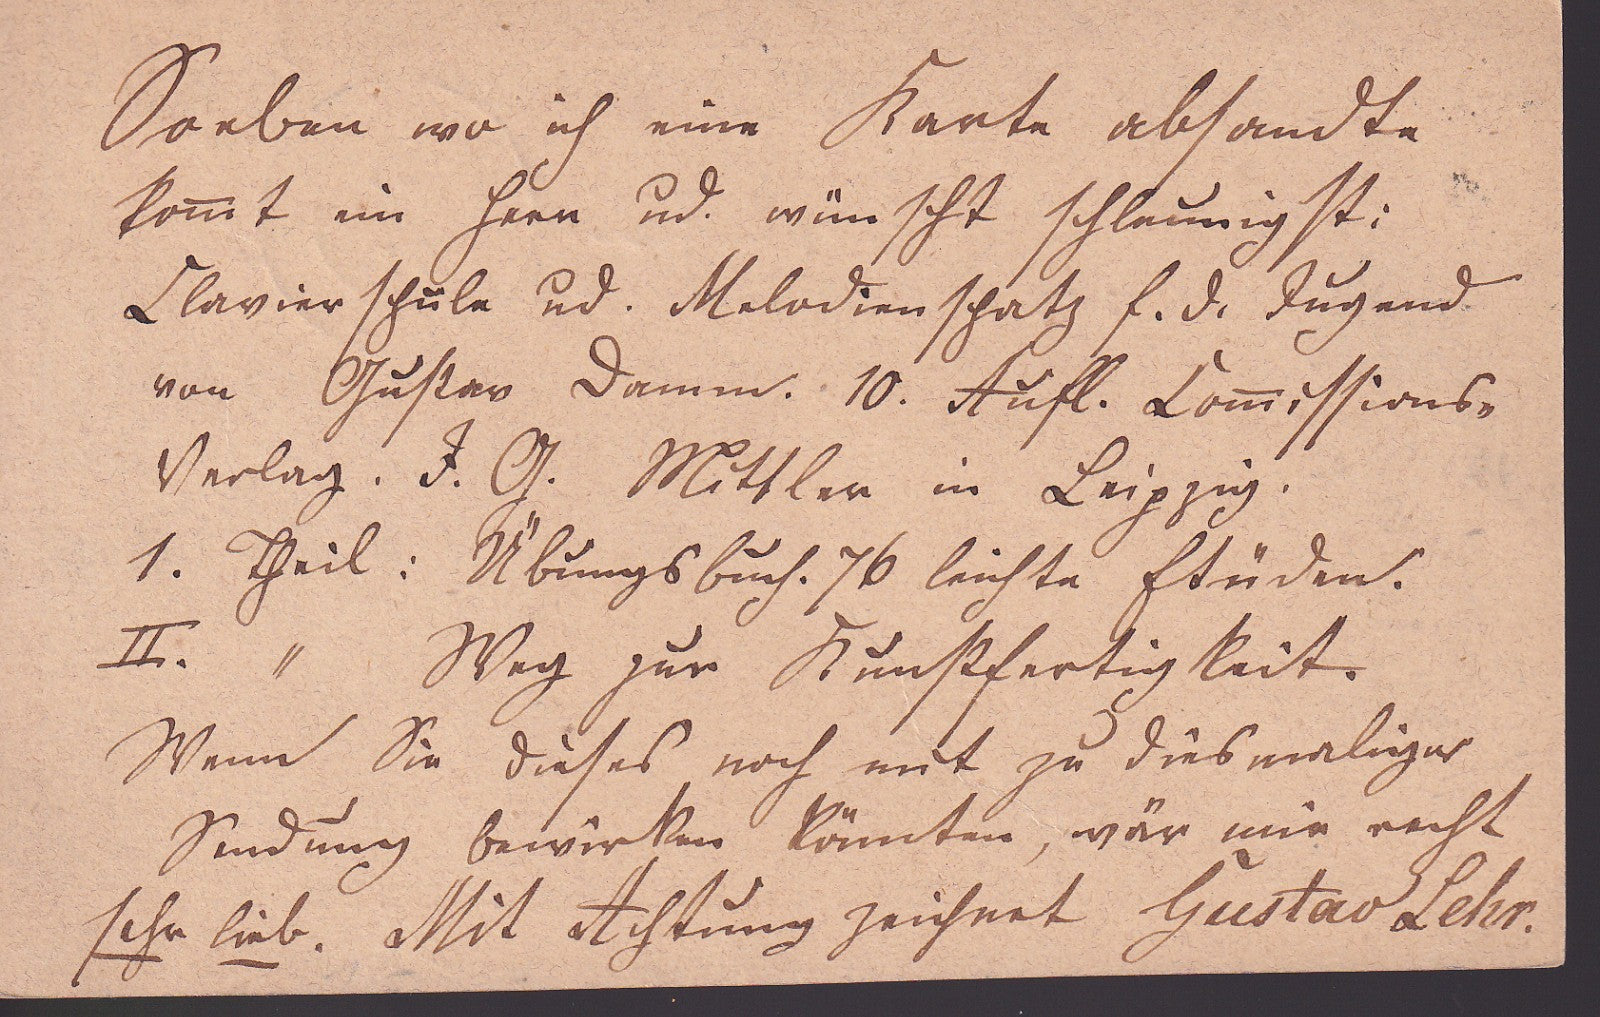 Soeben wo ich eine Karte absandte
kom̅t ein Herr ud. wünscht schleunigst:
Clavierschule ud. Melodienschatz f. d. Jugend
von Gustav Damm. 10. Aufl. Com̅issions-
Verlag. J. G. Mittler in Leipzig.
1. Theil: Übungsbuch. 76 leichte Etüden.
II. " Weg zur Kunstfertigkeit.
Wenn Sie dieses noch mit zu diesmaliger
Sendung bewirken könnten, wär mir recht
sehr lieb. Mit Achtung zeichnet Gustav Lehr.